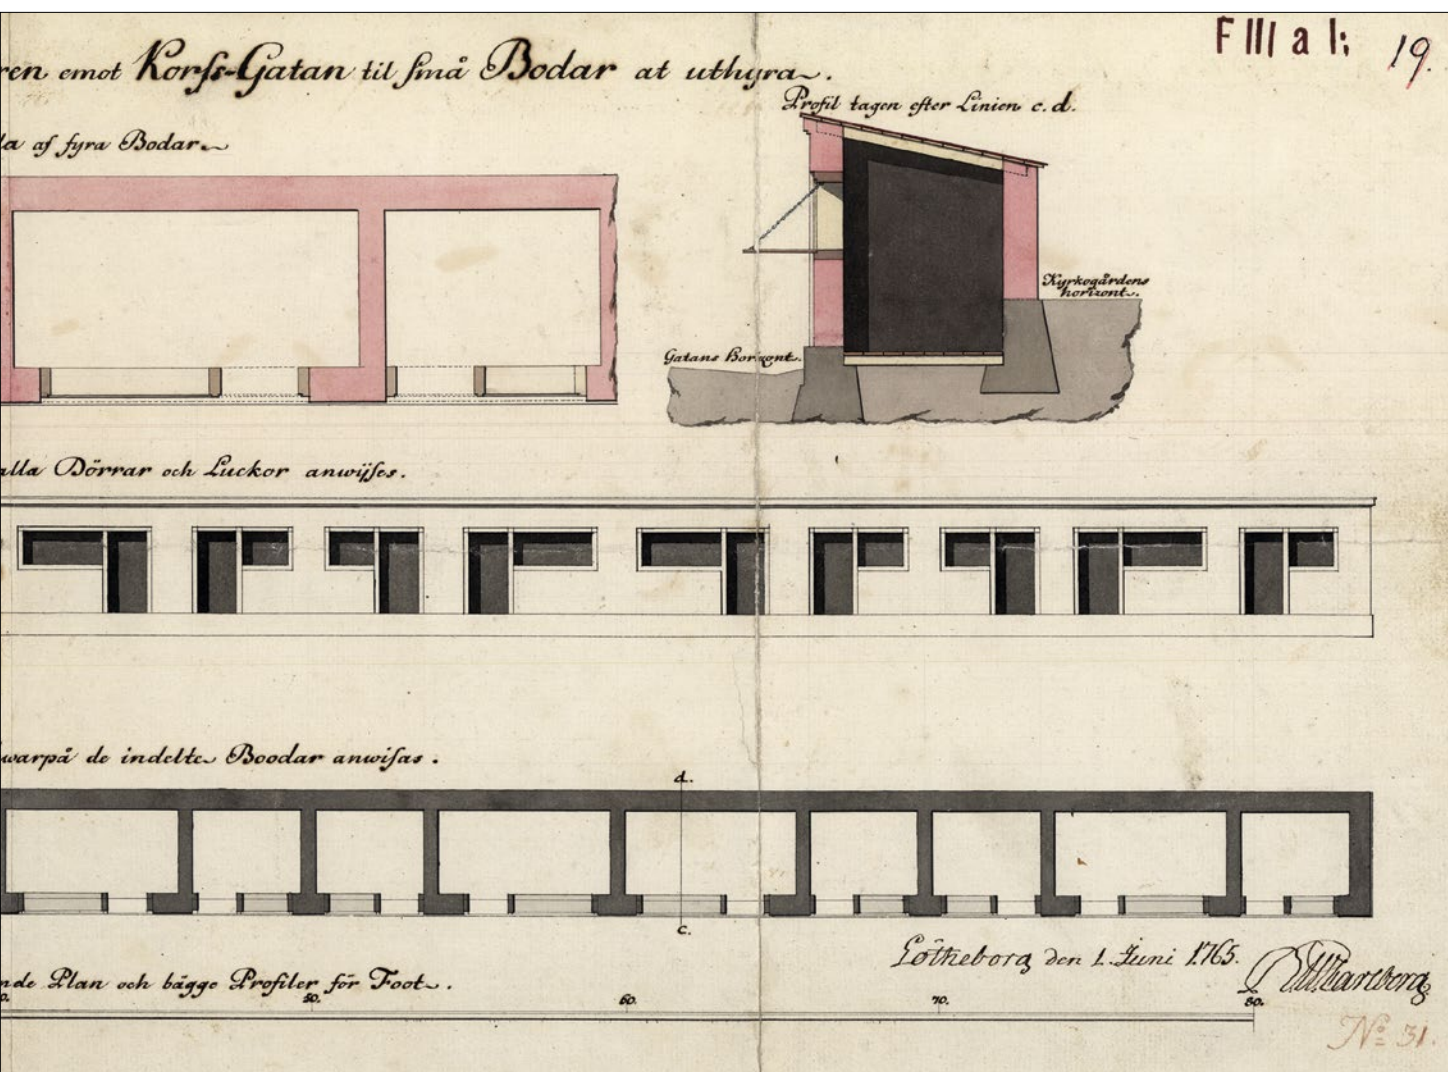 F III a 1: 19.
ren emot Korss-Gatan til små Bodar at uthyra.
Profil tagen efter Linien c.d.
la af fyra Bodar.
Kyrkogårdens
horizont.
Gatans Horizont.
alla Dörrar och Luckor anwijses.
warpå de indelte Boodar anwisas.
d.
c.
Götheborg den 1. Juni 1765.
nde Plan och bägge Profiler för Foot.
0. 50. 60. 70. 80.
No 31.